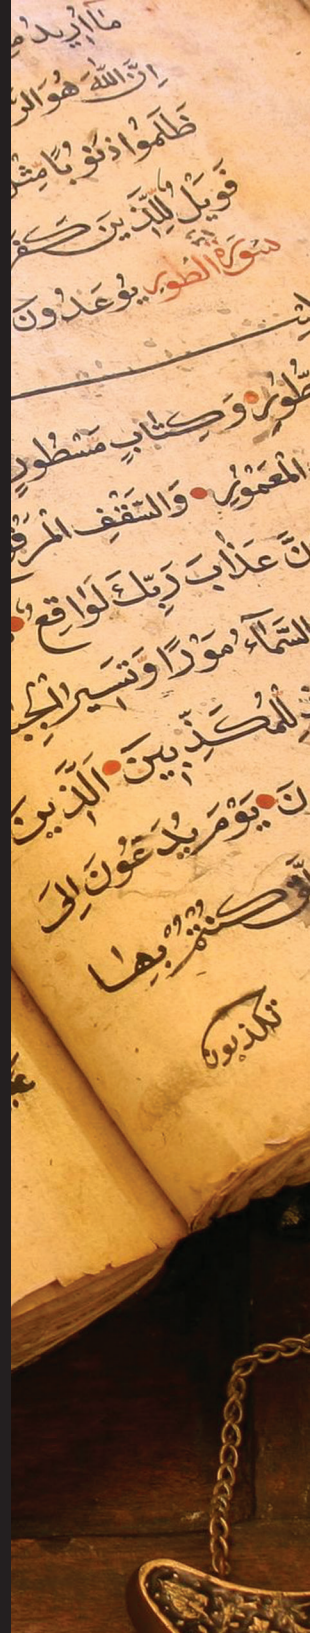 مَا أُرِيدُ
إِنَّ اللّٰهَ هُوَ
ظَلَمُوا ذَنُوبًا مِثْلَ
فَوَيْلٌ لِلَّذِينَ كَفَرُ
يُوعَدُونَ
سورة الطور
طُّورِ وَكِتَابٍ مَسْطُورٍ
الْمَعْمُورِ وَالسَّقْفِ الْمَرْفُ
نَّ عَذَابَ رَبِّكَ لَوَاقِعٌ
السَّمَاءُ مَوْرًا وَتَسِيرُ الْجِبَ
لِلْمُكَذِّبِينَ الَّذِينَ
نَ يَوْمَ يُدَعُّونَ إِلَى
كُنْتُمْ بِهَا
تكذبون